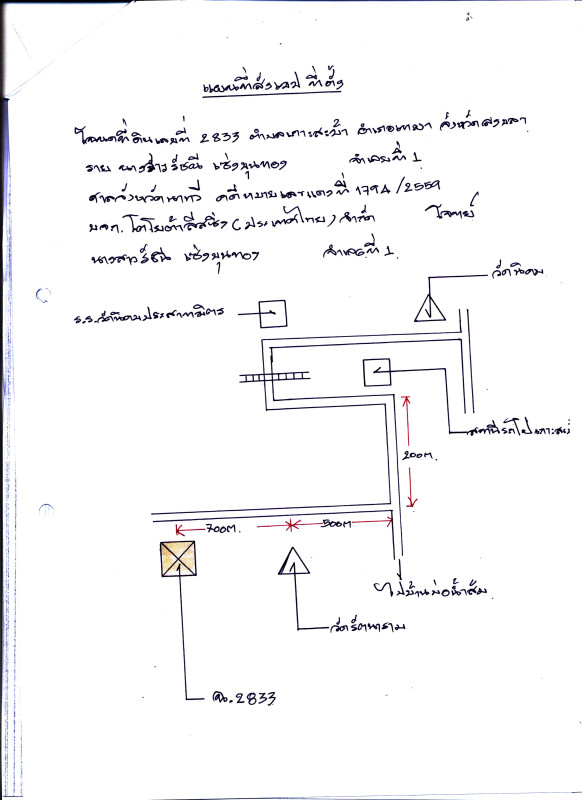 แผนที่สังเขป ที่ตั้ง
โฉนดที่ดินเลขที่ 2833 ตำบลเกาะสะบ้า อำเภอเทพา จังหวัดสงขลา
ราย นางสาวรัชนี เซ่งขุนทอง จำเลยที่ 1
ศาลจังหวัดนาทวี คดีหมายเลขแดงที่ 1794/2559
บจก. โตโยต้าลีสซิ่ง (ประเทศไทย) จำกัด โจทก์
นางสาวรัชนี เซ่งขุนทอง จำเลยที่ 1.
วัดนิคม
ร.ร.วัดนิคมประสาทมิตร
สถานีรถไฟเกาะสะบ้า
200m.
700m.
500m
ไปบ้านบ่อน้ำส้ม
วัดรัตนาราม
ฉ.2833